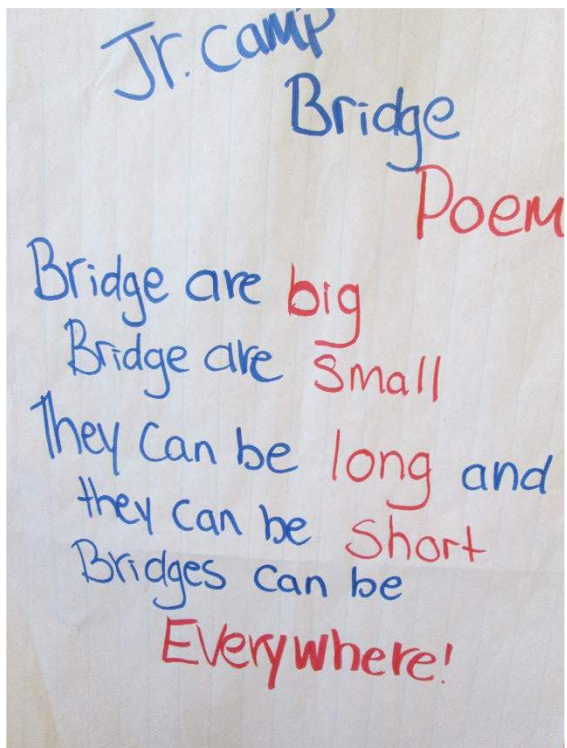 Jr. Camp
Bridge
Poem
Bridge are big
Bridge are small
They can be long and
they can be short
Bridges can be
Everywhere!